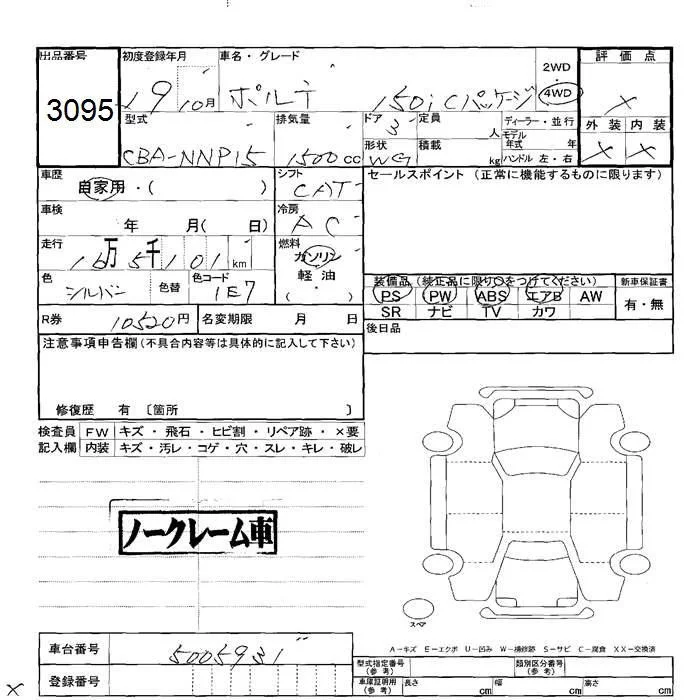 出品番号 初度登録年月 車名・グレード 2WD 評価点
3095 19 10月 ポルテ 150i Cパッケージ 4WD X
型式 排気量 ドア 3 定員 人 ディーラー・並行 外装 内装
モデル年式 年
CBA-NNP15 1500cc 形状 WG 積載 kg ハンドル 左・右 X X
車歴 自家用・( ) シフト CAT セールスポイント (正常に機能するものに限ります)
車検 年 月( 日) 冷房 AC
走行 16万5千101km 燃料 ガソリン
軽油
( ・ )
色 シルバー 色替 色コード 1E7
装備品 (純正品に限り○をつけてください) 新車保証書
PS PW ABS エアB AW 有・無
SR ナビ TV カワ
R券 10520円 名変期限 月 日 後日品
注意事項申告欄(不具合内容等は具体的に記入して下さい)
修復歴 有 〔箇所 〕
検査員 FW キズ・飛石・ヒビ割・リペア跡・×要
記入欄 内装 キズ・汚レ・コゲ・穴・スレ・キレ・破レ
ノークレーム車
スペア
A-キズ E-エクボ U-凹み W-補修跡 S-サビ C-腐食 XX-交換済
車台番号 5005931
型式指定番号 (参考) 類別区分番号 (参考)
登録番号
車庫証明用 (参考) 長さ cm 幅 cm 高さ cm
X